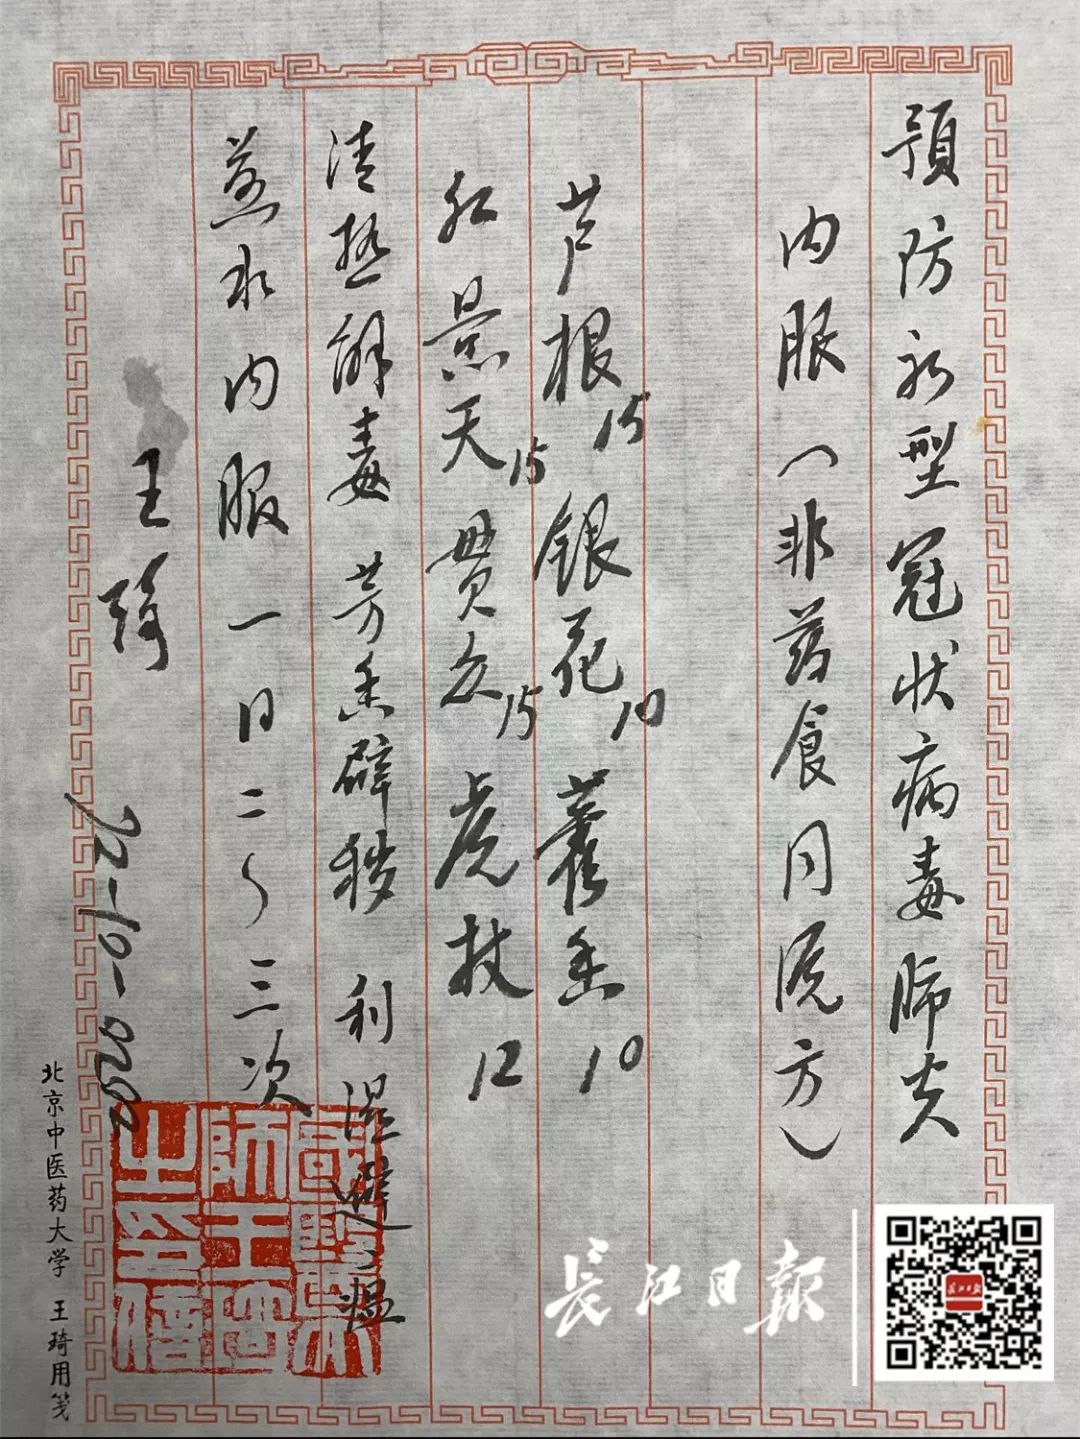 预防新型冠状病毒肺炎
内服（非药食同源方）
芦根15 银花10 藿香10
红景天15 贯众15 虎杖12
清热解毒 芳香辟秽 利湿避瘟
煎水内服 一日二～三次
王琦
2020-01-21
北京中医药大学 王琦用笺
长江日报
长江日报